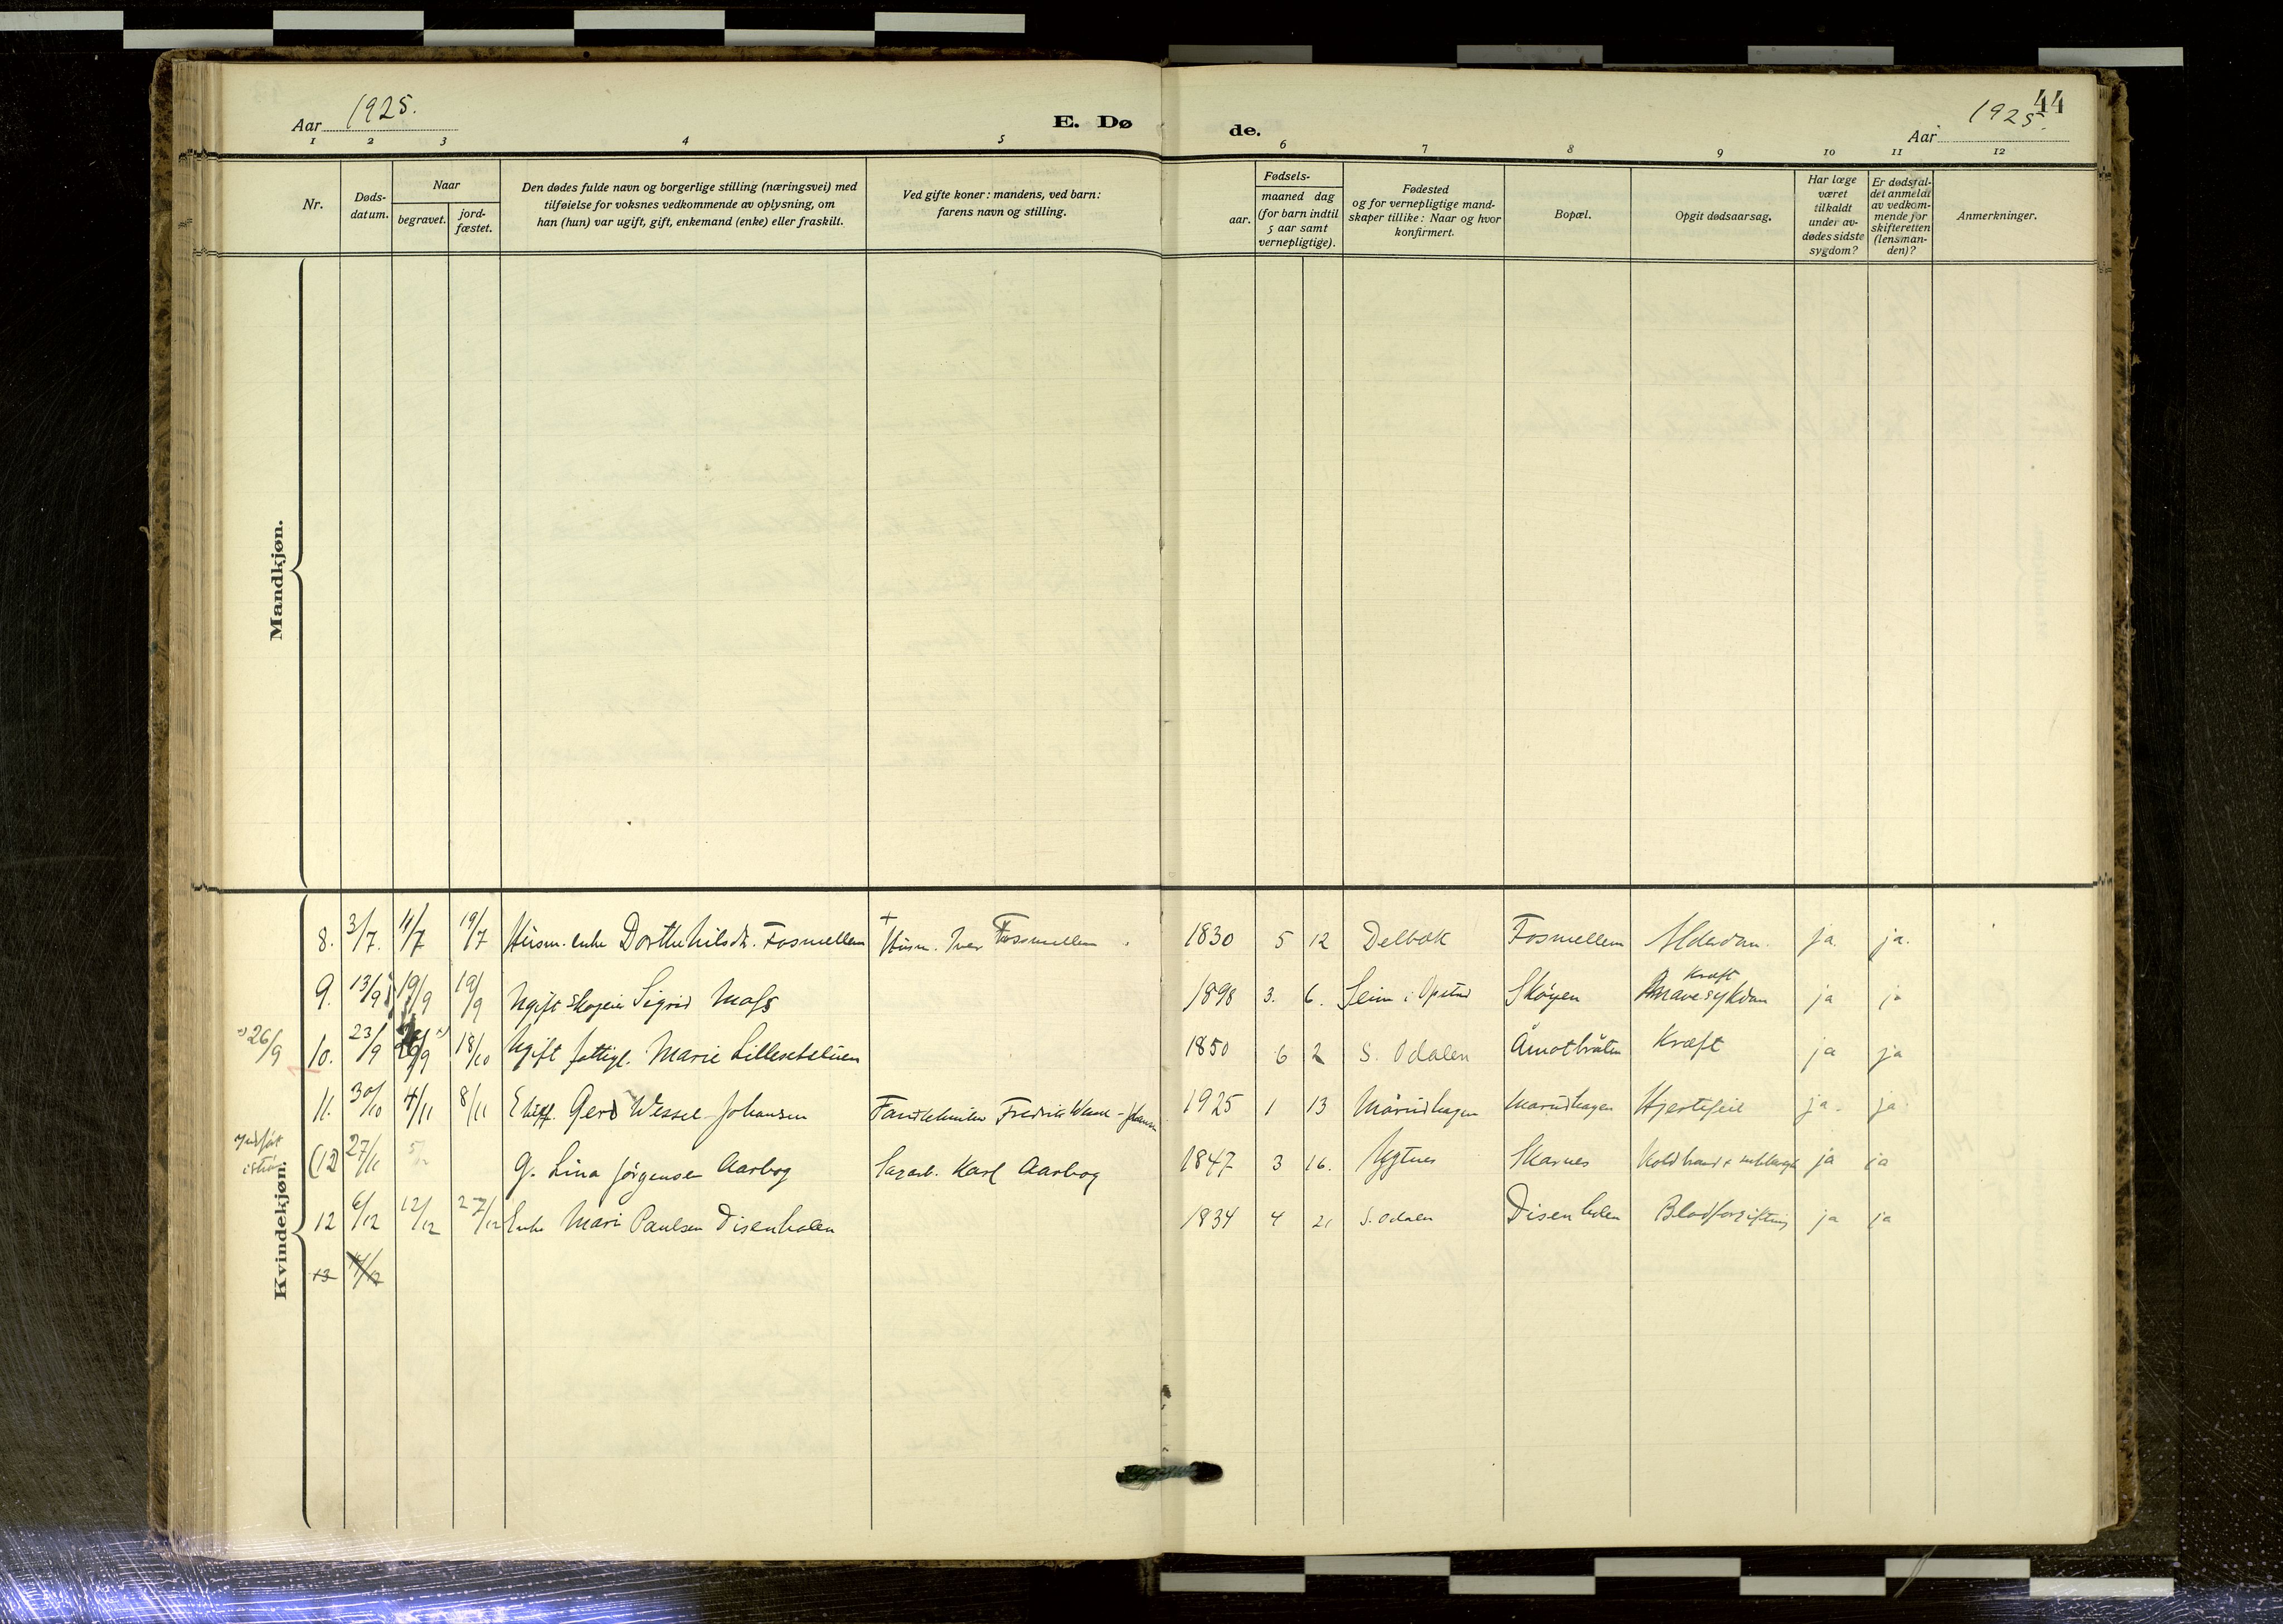 Aar 1925.
E. Dø
de.
Aar 1925.
44
1 2 3 4 5 6 7 8 9 10 11 12
Nr.
Døds-
datum.
Naar
begravet.
jord-
fæstet.
Den dødes fulde navn og borgerlige stilling (næringsvei) med
tilføielse for voksnes vedkommende av oplysning, om
han (hun) var ugift, gift, enkemand (enke) eller fraskilt.
Ved gifte koner: mandens, ved barn:
farens navn og stilling.
Fødsels-
aar.
maaned dag
(for barn indtil
5 aar samt
vernepligtige).
Fødested
og for vernepligtige mand-
skaper tillike: Naar og hvor
konfirmert.
Bopæl.
Opgit dødsaarsag.
Har læge
været
tilkaldt
under av-
dødes sidste
sygdom?
Er dødsfal-
det anmeldt
av vedkom-
mende for
skifteretten
(lensman-
den)?
Anmerkninger.
Mandkjøn.
Kvindekjøn.
8. 3/7. 11/7 19/7 Husm. enke Dorthe Nilsdt. Fosmellem † Husm. Iver Fossmellem 1830 5 12 Delbæk Fosmellem Alderdom. ja. ja.
9. 13/9 19/9 19/9 Ugift Sigrid Moss 1898 3. 6. Seim i Opstad Skøyen Kræft Mavesykdom ja ja
26/9 10. 23/9 26/9 18/10 Ugift fattigl. Marie Lillesebeluen 1850 6 2 S. Odalen Åmotbråten Kræft ja ja
11. 30/10 4/11 8/11 Gerd Wessel-Johansen Fredrik Wessel-Johansen 1925 1 13 Mårudhagen Marudhagen Hjertefeil ja. ja
(12) 27/11 5/12 G. Lina Jørgensen Aarbog Sagarb. Karl Aarbog 1847 3 16. Ugtnes Skarnes Koldbrand ja ja
12 6/12 12/12 27/12 Enke Mari Paulsen Disenholen 1834 4 21 S. Odalen Disenholen Blodforgiftning ja ja
13 11/12